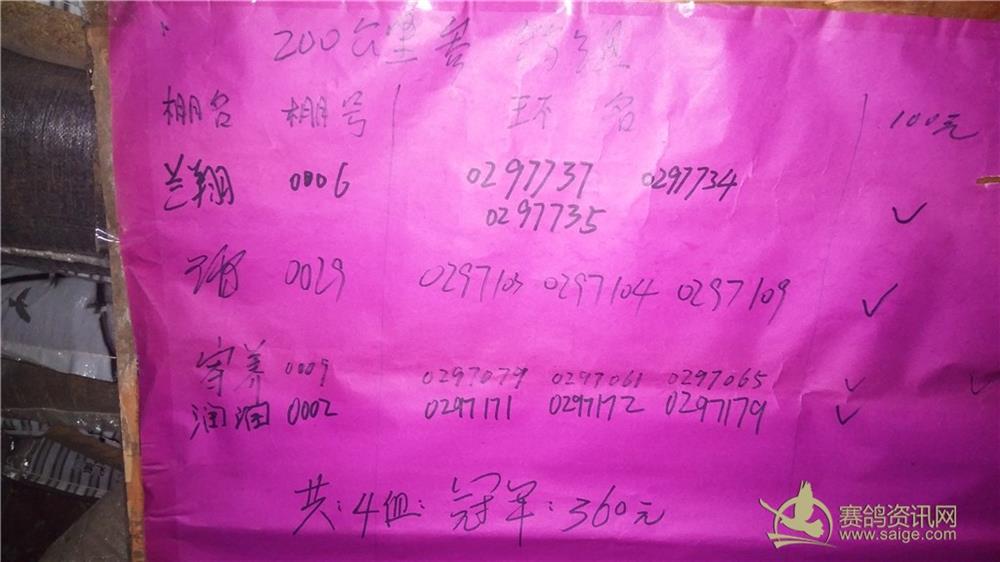 200公里 组
棚名 棚号 环 名 100元
兰翔 0006 0297737 0297734
0297735 ✓
0029 0297103 0297104 0297109 ✓
寄养 0009 0297079 0297061 0297065 ✓ ✓
润润 0002 0297171 0297172 0297179 ✓
共:4组: 冠军:360元
赛鸽资讯网
www.saige.com